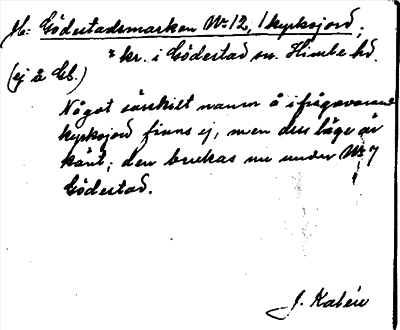 Jb: Gödestadsmarken No 12, 1 kyrksjord;
* kr. i Gödestad sn. Himle hd.
(ej å Gb.)
Något särskilt namn å ifrågavarande
kyrksjord finns ej, men dess läge är
känt; den brukas nu under No 7
Gödestad.
J. Kalén